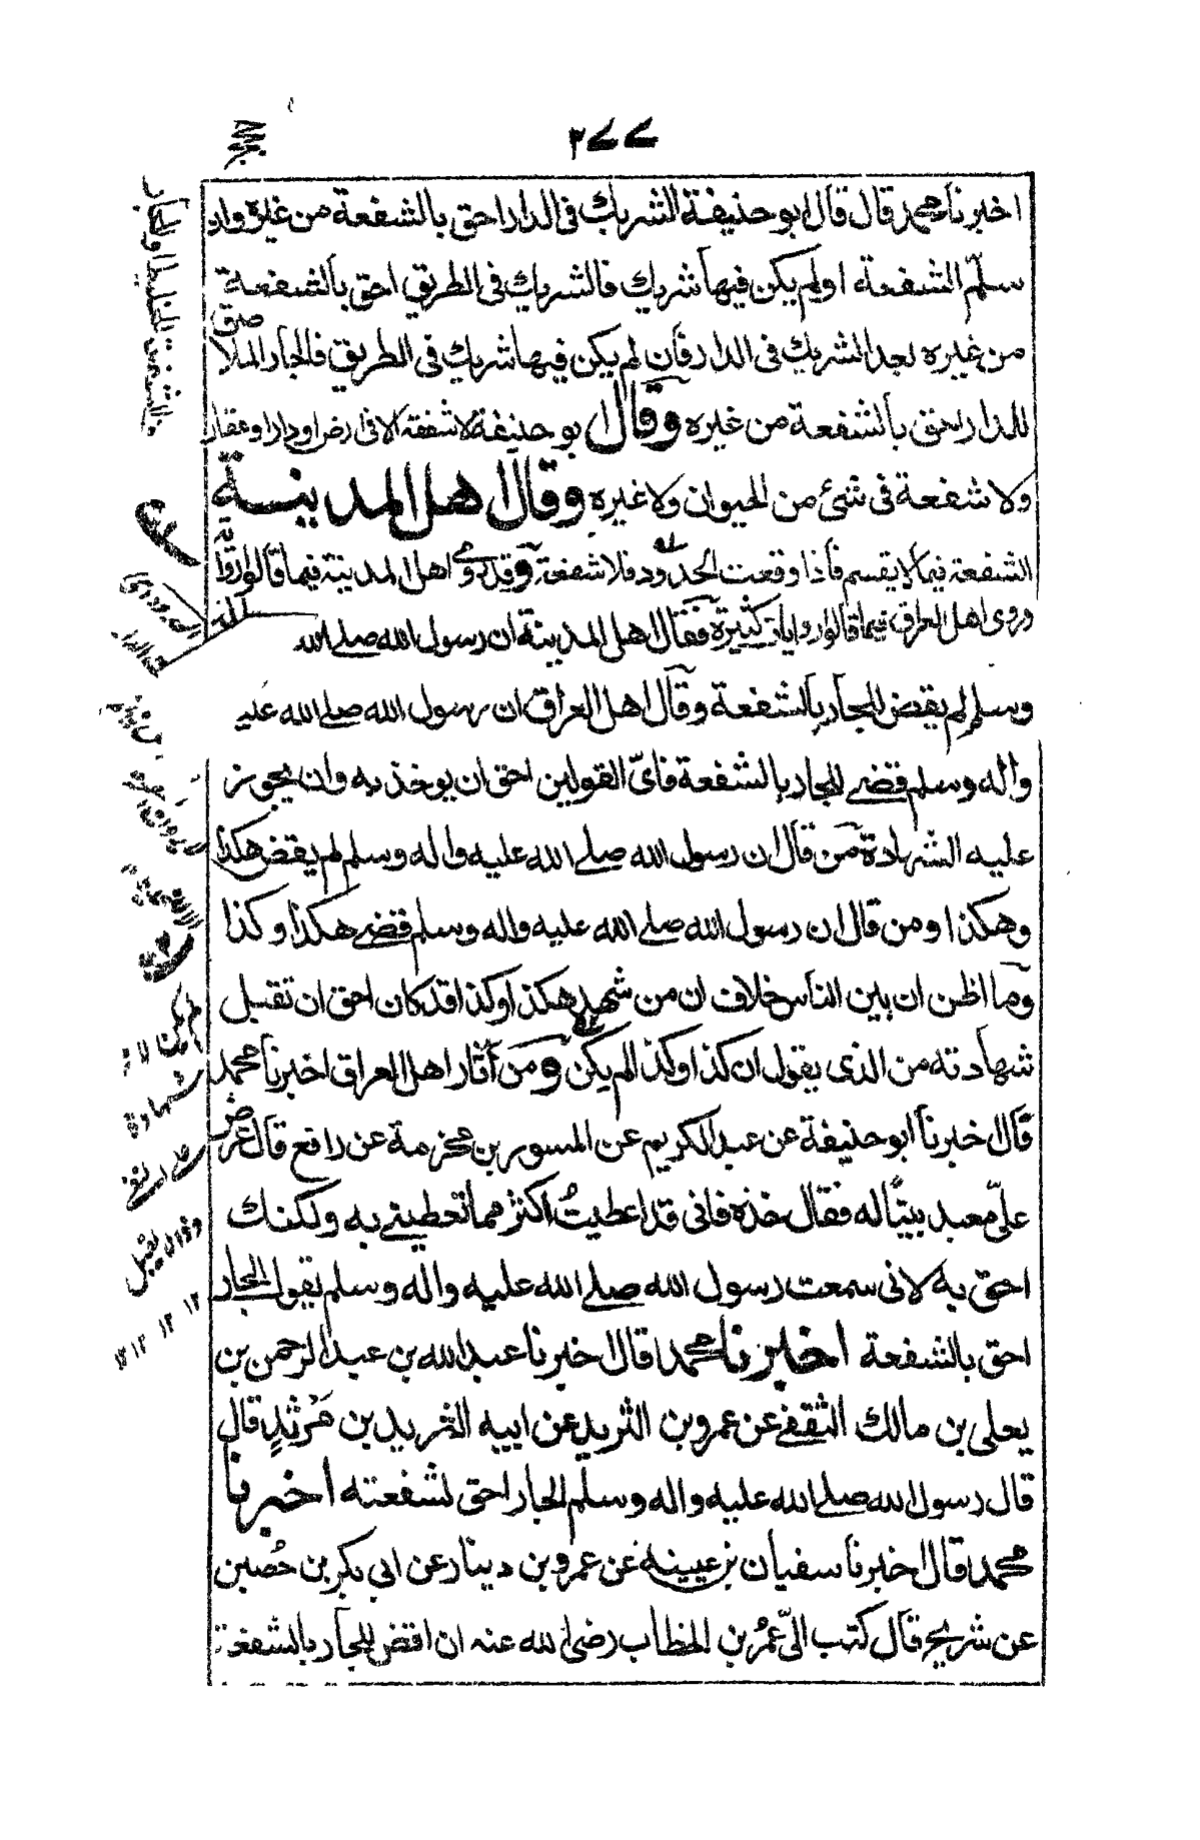 ٢٧٧
اخبرنا محمد قال قال ابو حنيفة الشريك فى الدار احق بالشفعة من غيره واذ
سلّم الشفعة او لم يكن فيها شريك فالشريك فى الطريق احق بالشفعة
من غيره بعد الشريك فى الدار فان لم يكن فيها شريك فى الطريق فالجار الملاصق
للدار احق بالشفعة من غيره وقال ابو حنيفة لا شفعة الا فى ارض او دار او عقار
ولا شفعة فى شئ من الحيوان ولا غيره وقال اهل المدينسة
الشفعة فيما لا يقسم فاذا وقعت الحدود فلا شفعة وقد روى اهل المدينة فيما قالوا رواية
وروى اهل العراق فيما قالوا روايات كثيرة فقال اهل المدينة ان رسول الله صلے الله
وسلم لم يقض للجار بالشفعة وقال اهل العراق ان رسول الله صلے الله عليه
واله وسلم قضے للجار بالشفعة فاىّ القولين احق ان يوخذ به وان يجوز
عليه الشهادة من قال ان رسول الله صلے الله عليه واله وسلم لم يقض هكذا
وهكذا ومن قال ان رسول الله صلے الله عليه واله وسلم قضے هكذا وكذا
وما اظن ان بين الناس خلاف ان من شهد هكذا وكذا قد كان احق ان تقبل
شهادته من الذى يقول ان كذا وكذا لم يكن ومن آثار اهل العراق اخبرنا محمد
قال اخبرنا ابو حنيفة عن عبد الكريم عن المسور بن مخرمة عن رافع قال عرض
علىّ معبد بيتًا له فقال خذه فانى قد اعطيتُ اكثر مما تعطينے به ولكنك
احق به لانى سمعت رسول الله صلے الله عليه واله وسلم يقول الجار
احق بالشفعة اخبرنا محمد قال اخبرنا عبد الله بن عبد الرحمن بن
يعلى بن مالك الثقفے عن عمرو بن الثريد عن ابيه الشريد بن مَرْثدٍ قال
قال رسول الله صلے الله عليه واله وسلم الجار احق لشفعته اخبرنا
محمد قال اخبرنا سفيان بن عيينه عن عمرو بن دينار عن ابى بكر بن حُصين
عن شريح قال كتب الىّ عمرُ بن الخطاب رضى الله عنه ان اقض للجار بالشفعة